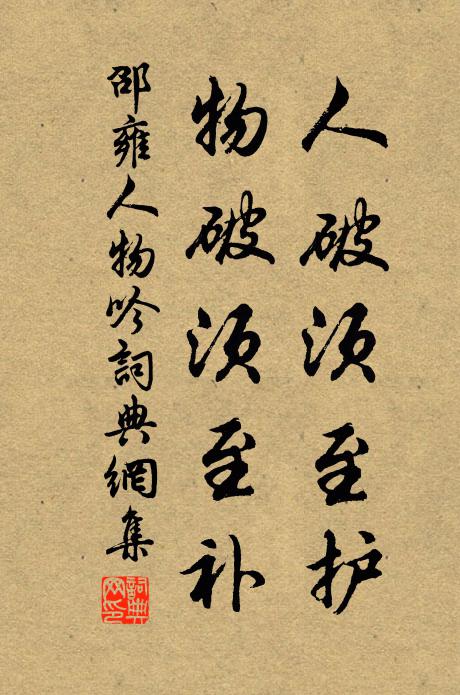 人破须至护
物破须至补
邵雍人物吟詞典網集
詞典網印